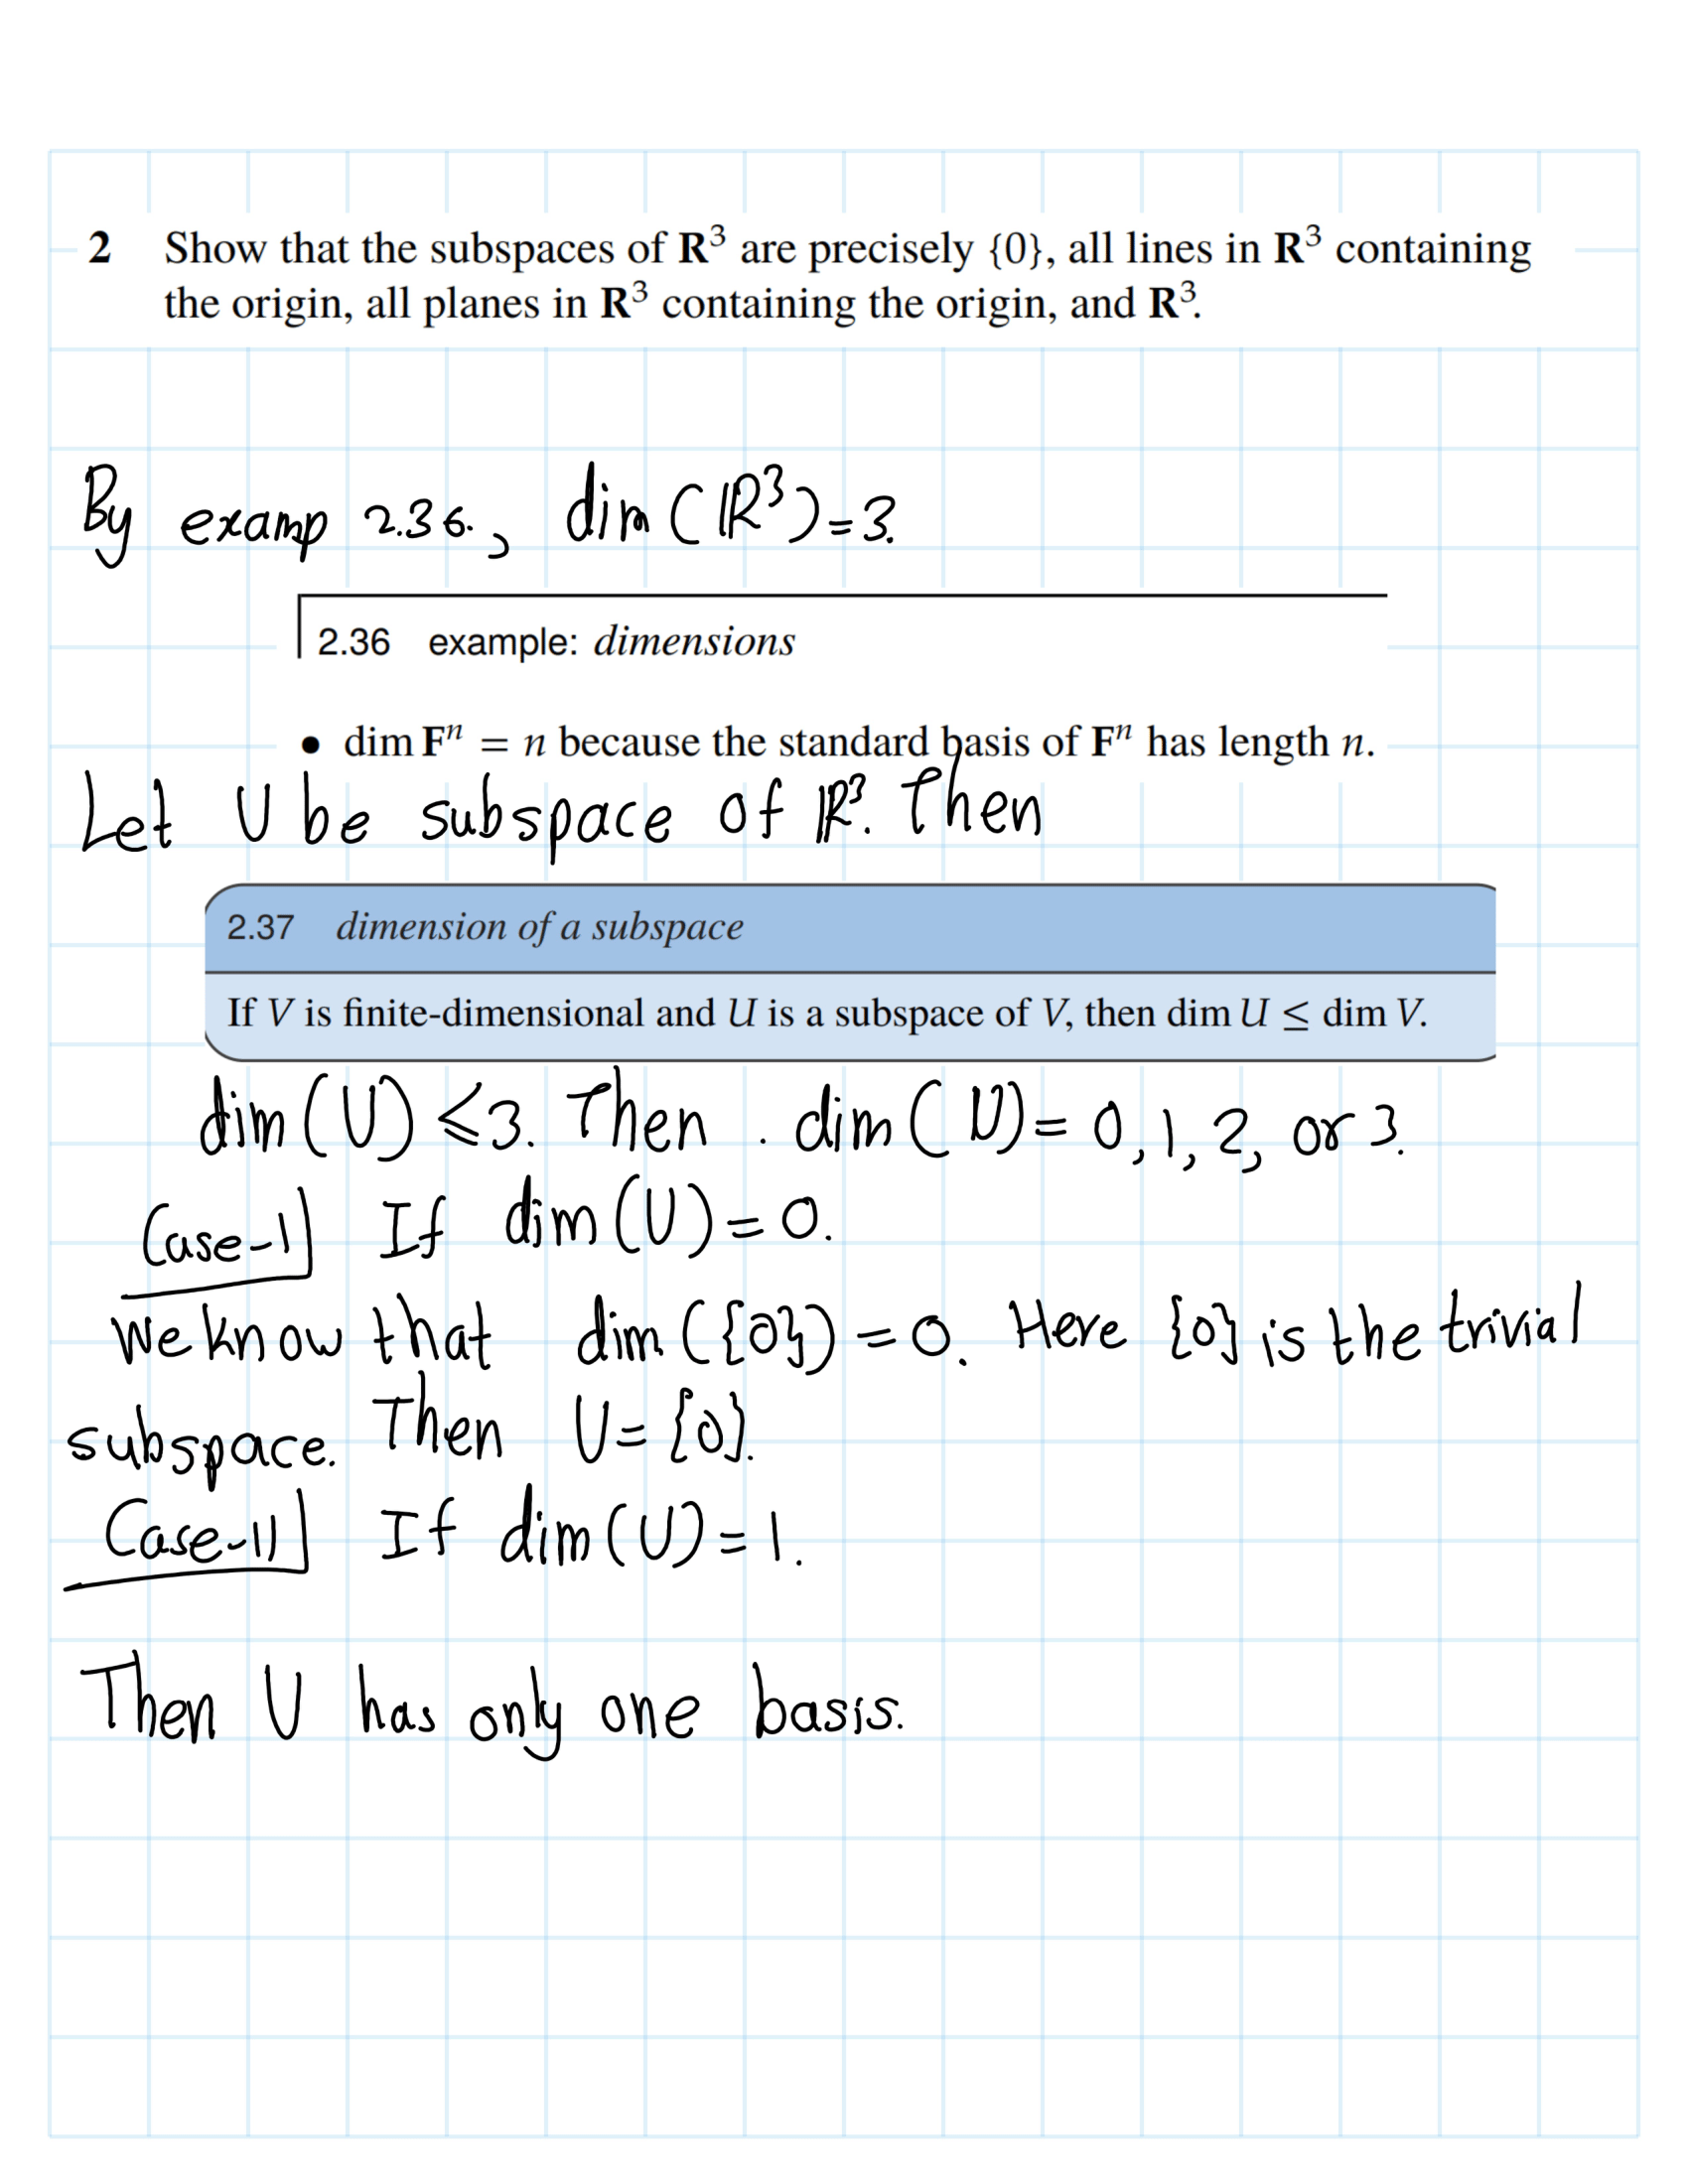 2 Show that the subspaces of R³ are precisely {0}, all lines in R³ containing
the origin, all planes in R³ containing the origin, and R³.
By examp 2.36., dim(ℝ³)=3.
2.36 example: dimensions
• dim Fⁿ = n because the standard basis of Fⁿ has length n.
Let U be subspace of ℝ³. Then
2.37 dimension of a subspace
If V is finite-dimensional and U is a subspace of V, then dim U ≤ dim V.
dim(U) ≤ 3. Then . dim(U) = 0, 1, 2, or 3.
Case-I If dim(U) = 0.
We know that dim({0}) = 0. Here {0} is the trivial
subspace. Then U = {0}.
Case-II If dim(U) = 1.
Then U has only one basis.